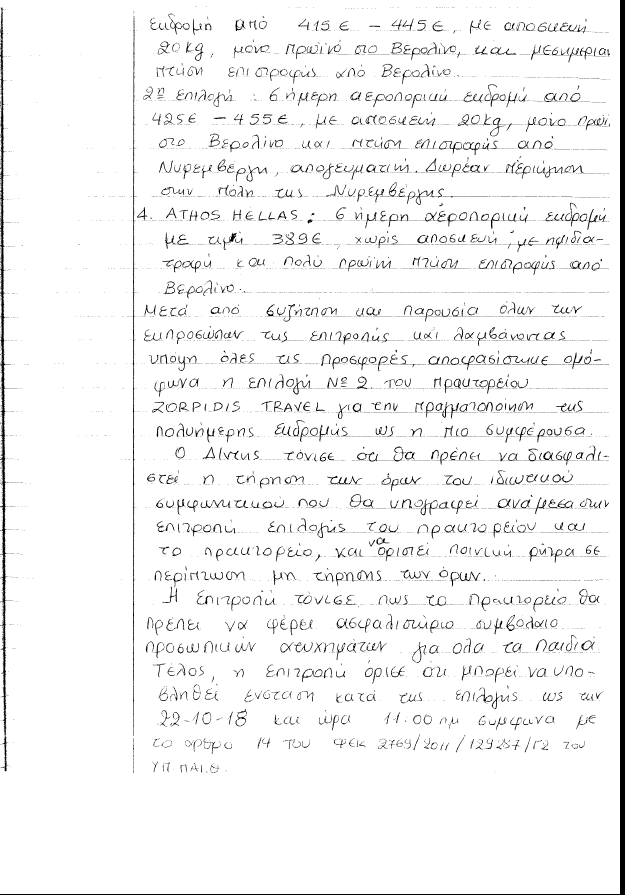 εκδρομή από 415€ – 445€, με αποσκευή
20kg, μόνο πρωϊνό στο Βερολίνο, και μεσημερια
πτήση επιστροφής από Βερολίνο.
2η επιλογή : 6ήμερη αεροπορική εκδρομή από
425€ – 455€, με αποσκευή 20kg, μόνο πρωϊ
στο Βερολίνο και πτήση επιστροφής από
Νυρεμβέργη, απογευματινή. Δωρέαν περιήγηση
στην πόλη της Νυρεμβέργης.
4. ATHOS HELLAS : 6ήμερη αεροπορική εκδρομή
με τιμή 389€, χωρίς αποσκευή, με ημιδια-
τροφή και πολύ πρωϊνή πτήση επιστροφής από
Βερολίνο.
Μετά από συζήτηση και παρουσία όλων των
εκπροσώπων της επιτροπής και λαμβάνοντας
υπόψη όλες τις προσφορές, αποφασίστηκε ομό-
φωνα η επιλογή Νο 2 του πρακτορείου
ZORPIDIS TRAVEL για την πραγματοποίηση της
πολυήμερης εκδρομής ως η πιο συμφέρουσα.
Ο Δ/ντης τόνισε ότι θα πρέπει να διασφαλι-
στεί η τήρηση των όρων του ιδιωτικού
συμφωνητικού που θα υπογραφεί ανάμεσα στην
επιτροπή επιλογής του πρακτορείου και
το πρακτορείο, και να οριστεί ποινική ρήτρα σε
περίπτωση μη τήρησης των όρων.
Η επιτροπή τόνισε πως το πρακτορείο θα
πρέπει να φέρει ασφαλιστήριο συμβόλαιο
προσωπικών ατυχημάτων για όλα τα παιδιά
Τέλος, η επιτροπή όρισε ότι μπορεί να υπο-
βληθεί ένσταση κατά της επιλογής ως την
22-10-18 και ώρα 11.00 πμ σύμφωνα με
το αρθρο 14 του ΦΕΚ 2769/2011/129287/Γ2 του
ΥΠ.ΠΑΙ.Θ.